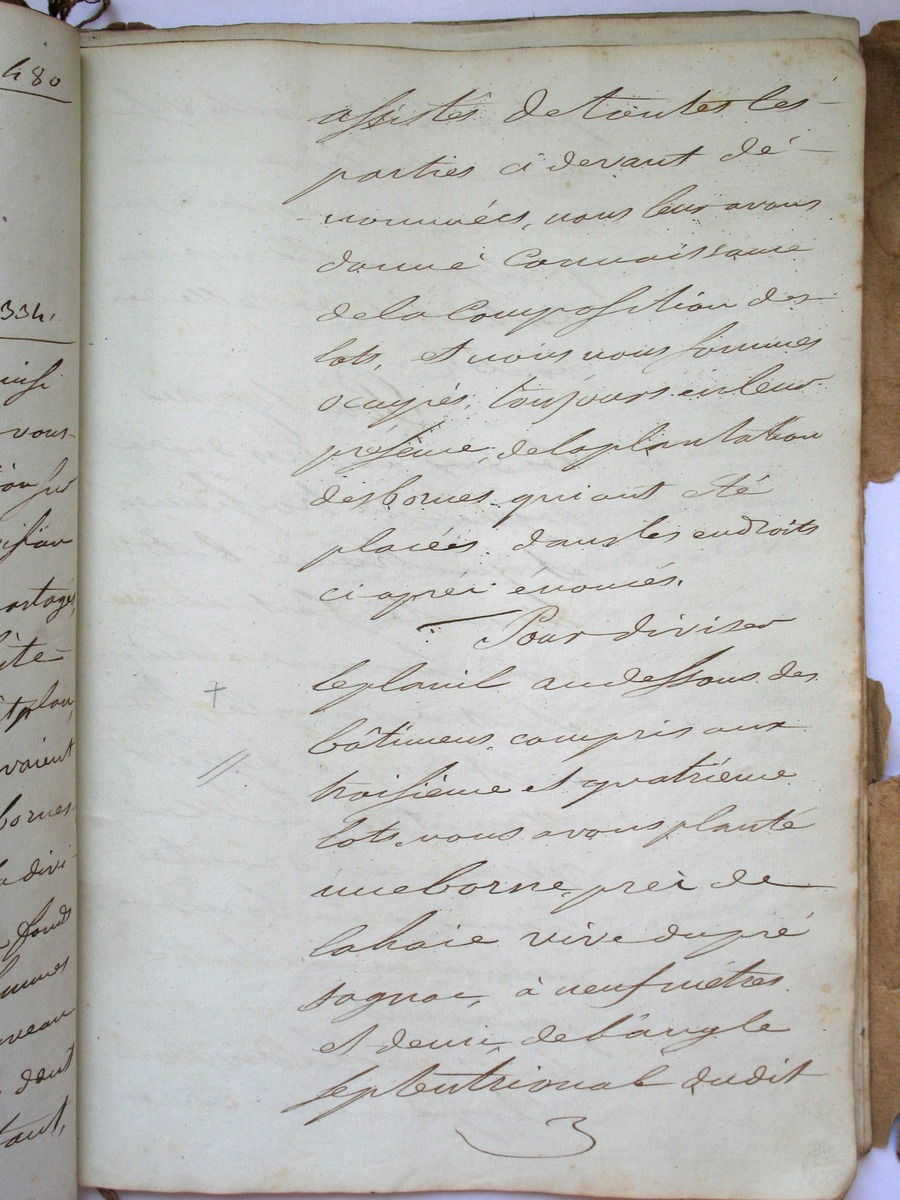 480
334.
assistés de toutes les
parties ci devant dé-
-nommées, nous leur avons
donné connaissance
de la composition des
lots, et nous nous sommes
ocupés, toujours en leur
présence, de la plantation
des bornes qui ont été
placées dans les endroits
ci après énoncés.
Pour diviser
le planil au dessous des
bâtimens compris aux
troisième et quatrième
lots nous avons planté
une borne près de
la haie vive du pré
sagnac, à neuf mètres
et demi de l'angle
septentrional dudit
3
vous
partagés,
ite-
plan,
vaient
bornes
divi-
fonds
dont
tant,